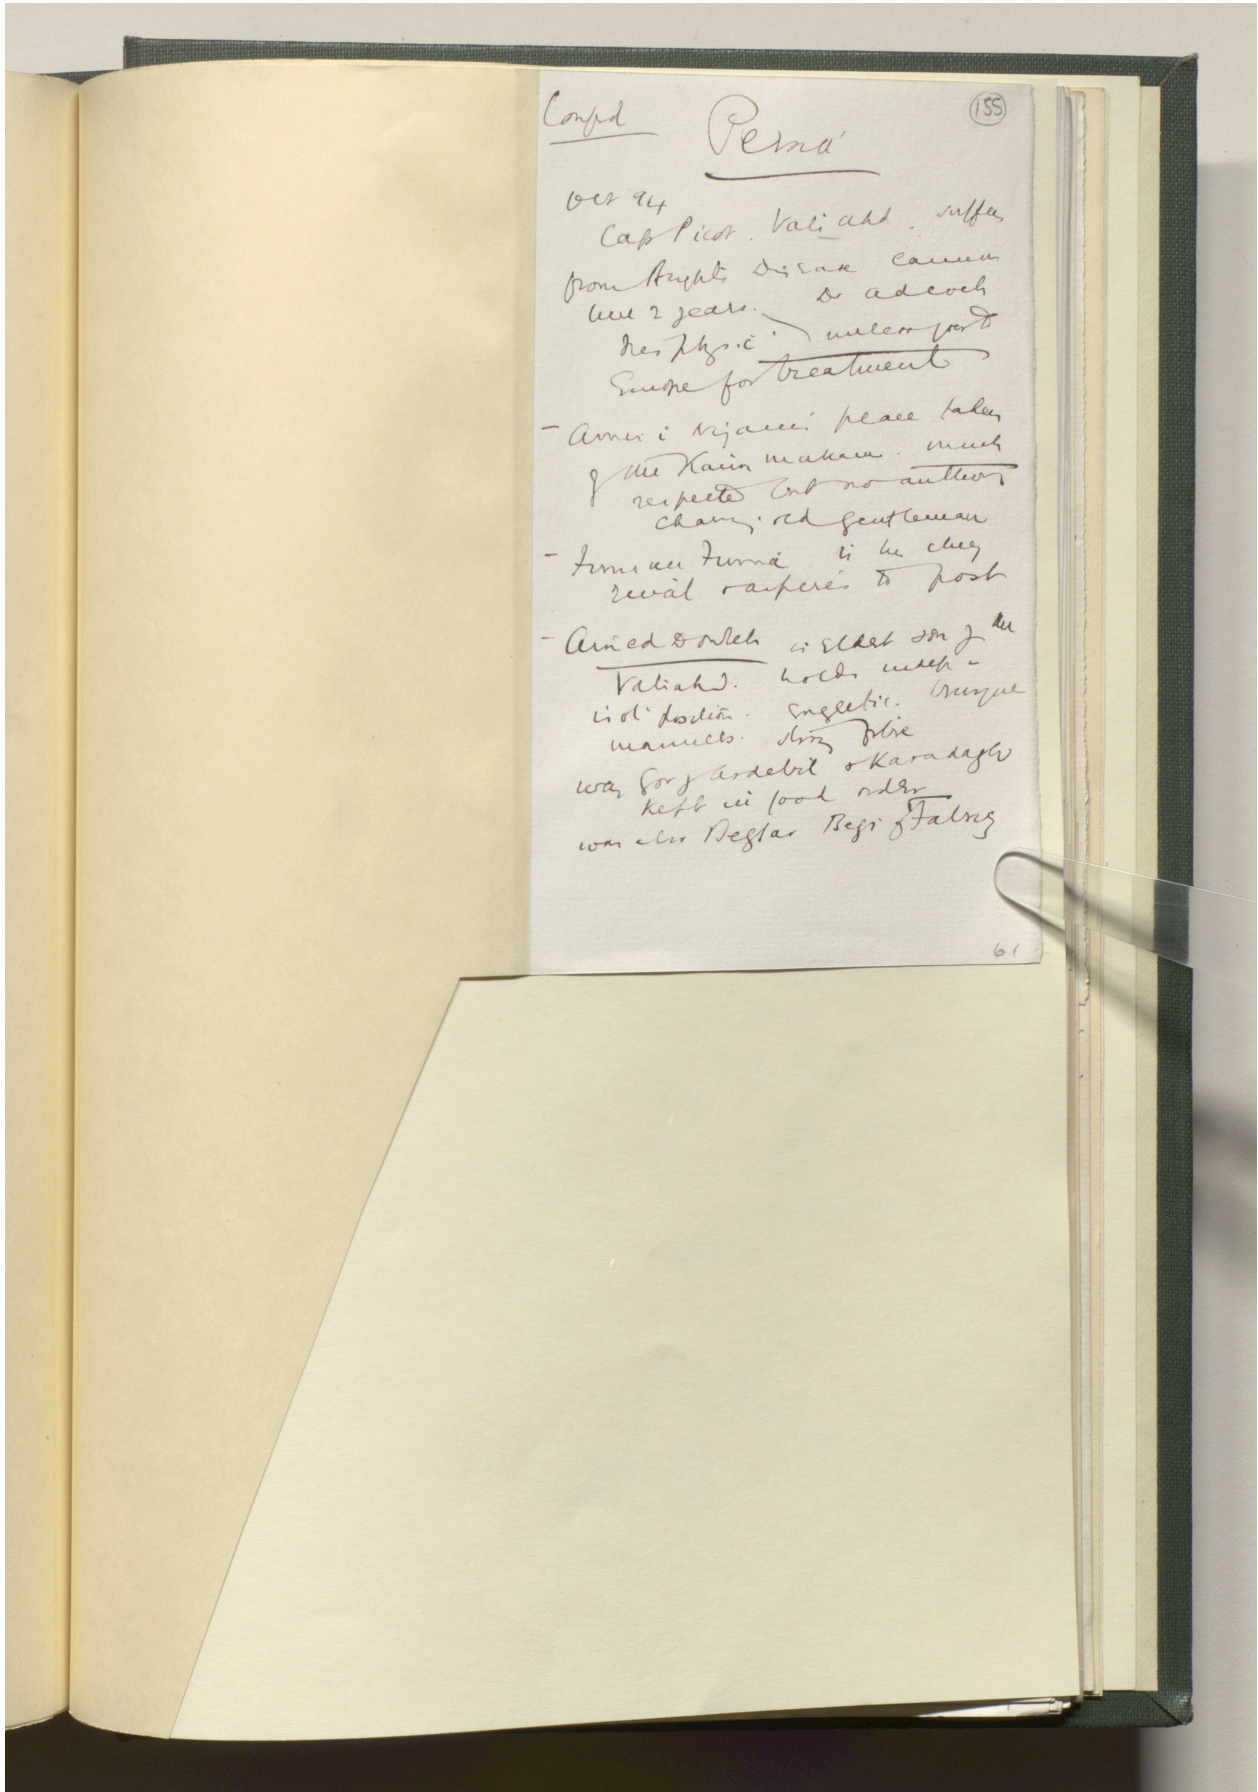 Confid
155
Persia
Oct 94
Capt Picot. Valiahd. suffers
from Brights Disease cannot
live 2 years. Dr Adcock
his physic: unless goes to
Europe for treatment
- Amir i Nizami place taken
by the Kaim makam. much
respected but no authority
charmg old gentleman
- Firman Firma is his chief
rival & aspires to post
- Ained Douleh is eldest son of the
Valiahd. holds indep-
position. energetic. brusque
manners.
was Gov of Ardebil & Karadagh
kept in good order
was also Beglar Begi of Tabriz
61